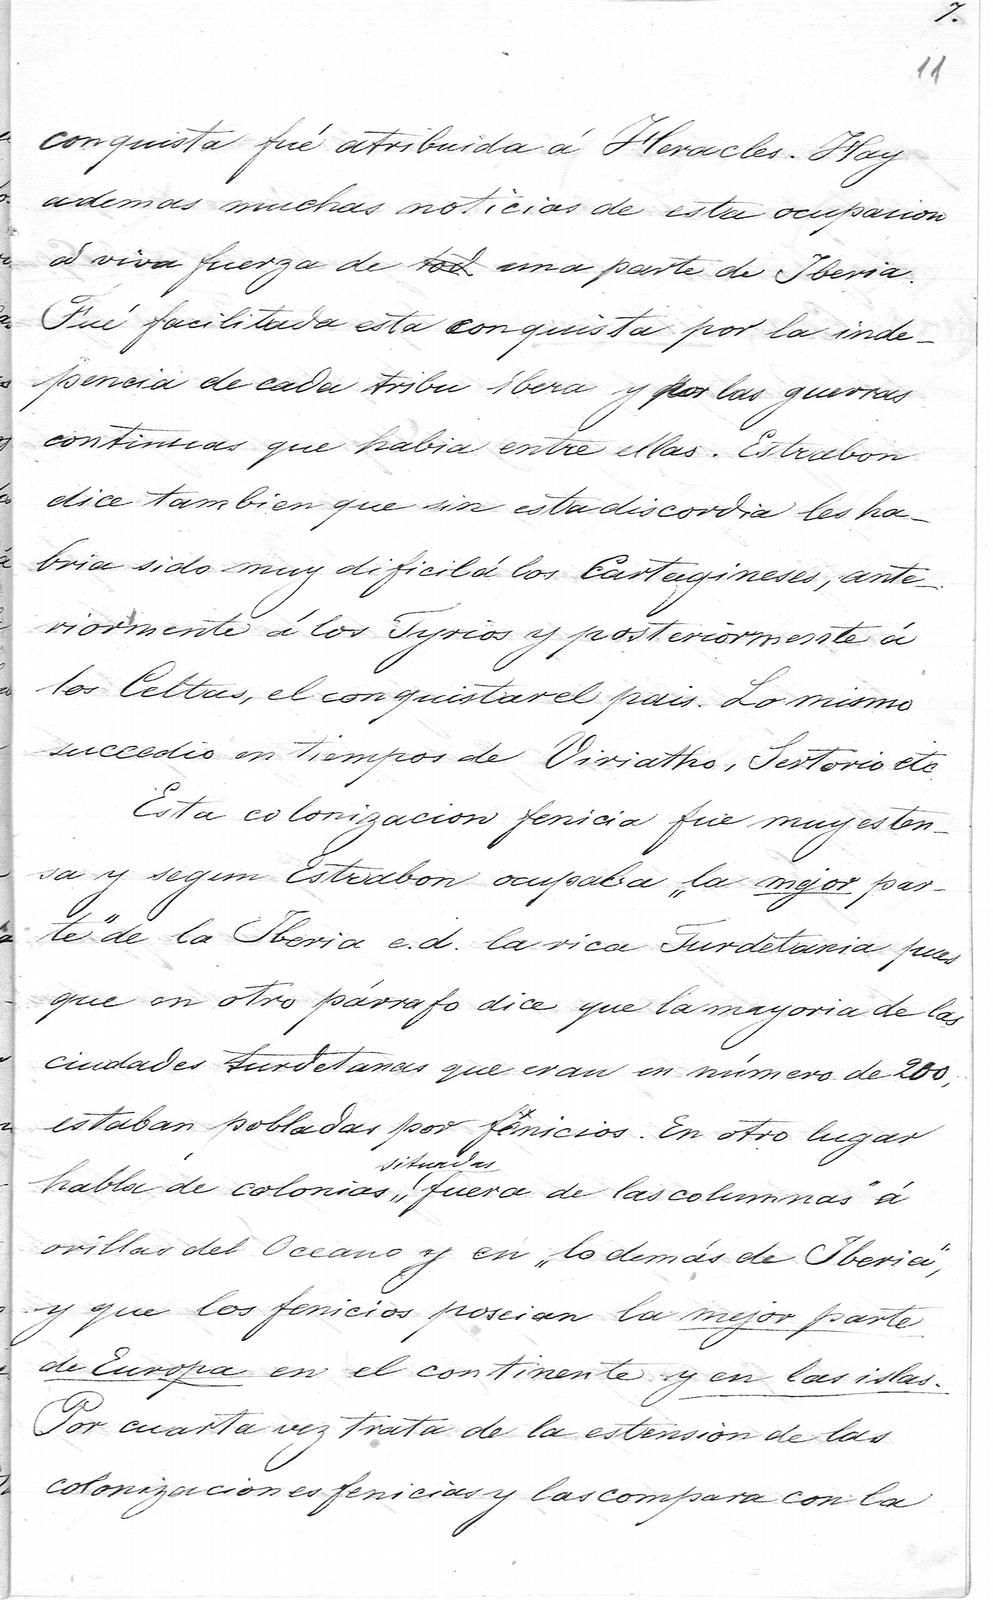 7.
11
conquista fué atribuida á Heracles. Hay
ademas muchas noticias de esta ocupacion
á viva fuerza de tod una parte de Iberia.
Fué facilitada esta conquista por la inde-
pencia de cada tribu ibera y por las guerras
continuas que habia entre ellas. Estrabon
dice tambien que sin esta discordia les ha-
bria sido muy dificil á los Cartagineses, ante-
riormente á los Tyrios y posteriormente á
los Celtas, el conquistar el pais. Lo mismo
succedio en tiempos de Viriatho, Sertorio etc
Esta colonizacion fenicia fue muy esten-
sa y segun Estrabon ocupaba „la mejor par-
te" de la Iberia e.d. la rica Turdetania pues
que en otro párrafo dice que la mayoria de las
ciudades turdetanas que eran en número de 200,
estaban pobladas por fenicios. En otro lugar
situadas
habla de colonias „fuera de las columnas" á
orillas del Oceano y en „lo demás de Iberia",
y que los fenicios poseian la mejor parte
de Europa en el continente y en las islas.
Por cuarta vez trata de la estension de las
colonizaciones fenicias y las compara con la